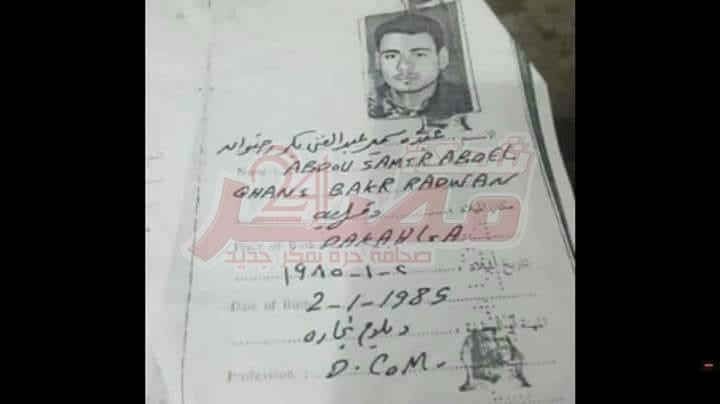 الاسم : عبده سمير عبد الغنى بكر رضوان
Name ABDOU SAMIR ABDEL
GHANI BAKR RADWAN
مكان الميلاد : دقهلية
Place of Birth DAKAHLIA
تاريخ الميلاد : ٢-١-١٩٨٥
Date of Birth 2-1-1985
المهنة : دبلوم تجاره
Profession : D.COM.
شبكة
24
مصر
صحافه حره بفكر جديد